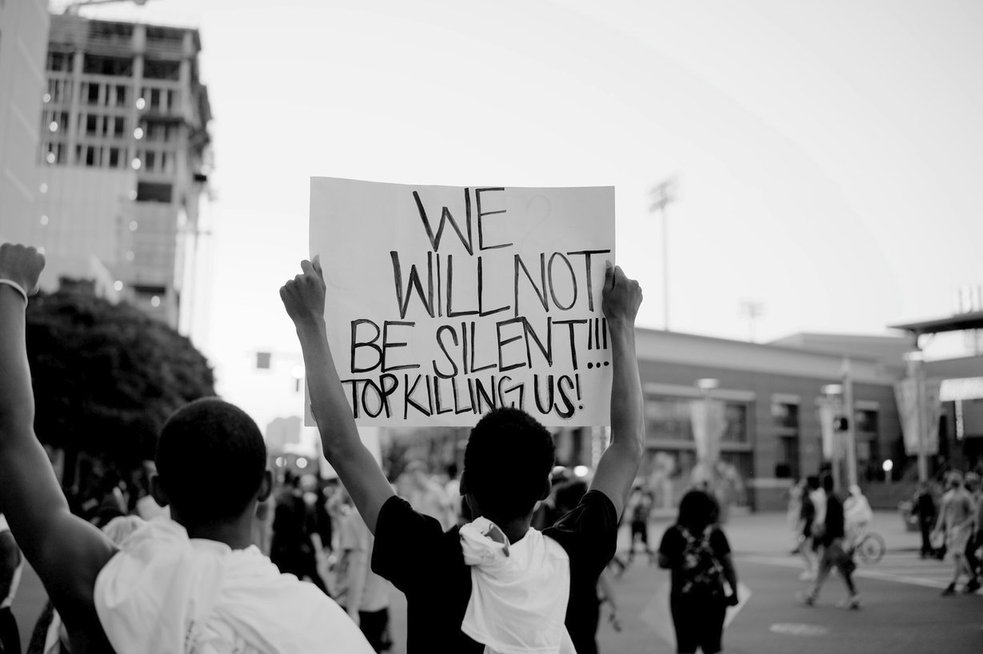 WE
WILL NOT
BE SILENT!!!
TOP KILLING US!